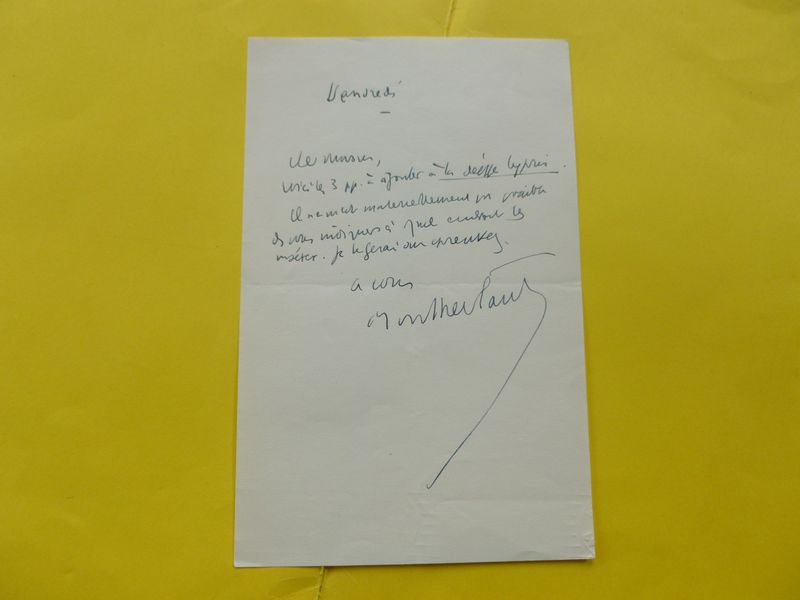 Vendredi
Cher Monsieur,
voici les 3 pp. à ajouter à la déesse cypris.
Il ne m'est materiellement pas possible
de vous indiquer à quel endroit les
insérer. Je le ferai sur épreuves.
à vous
Montherlant